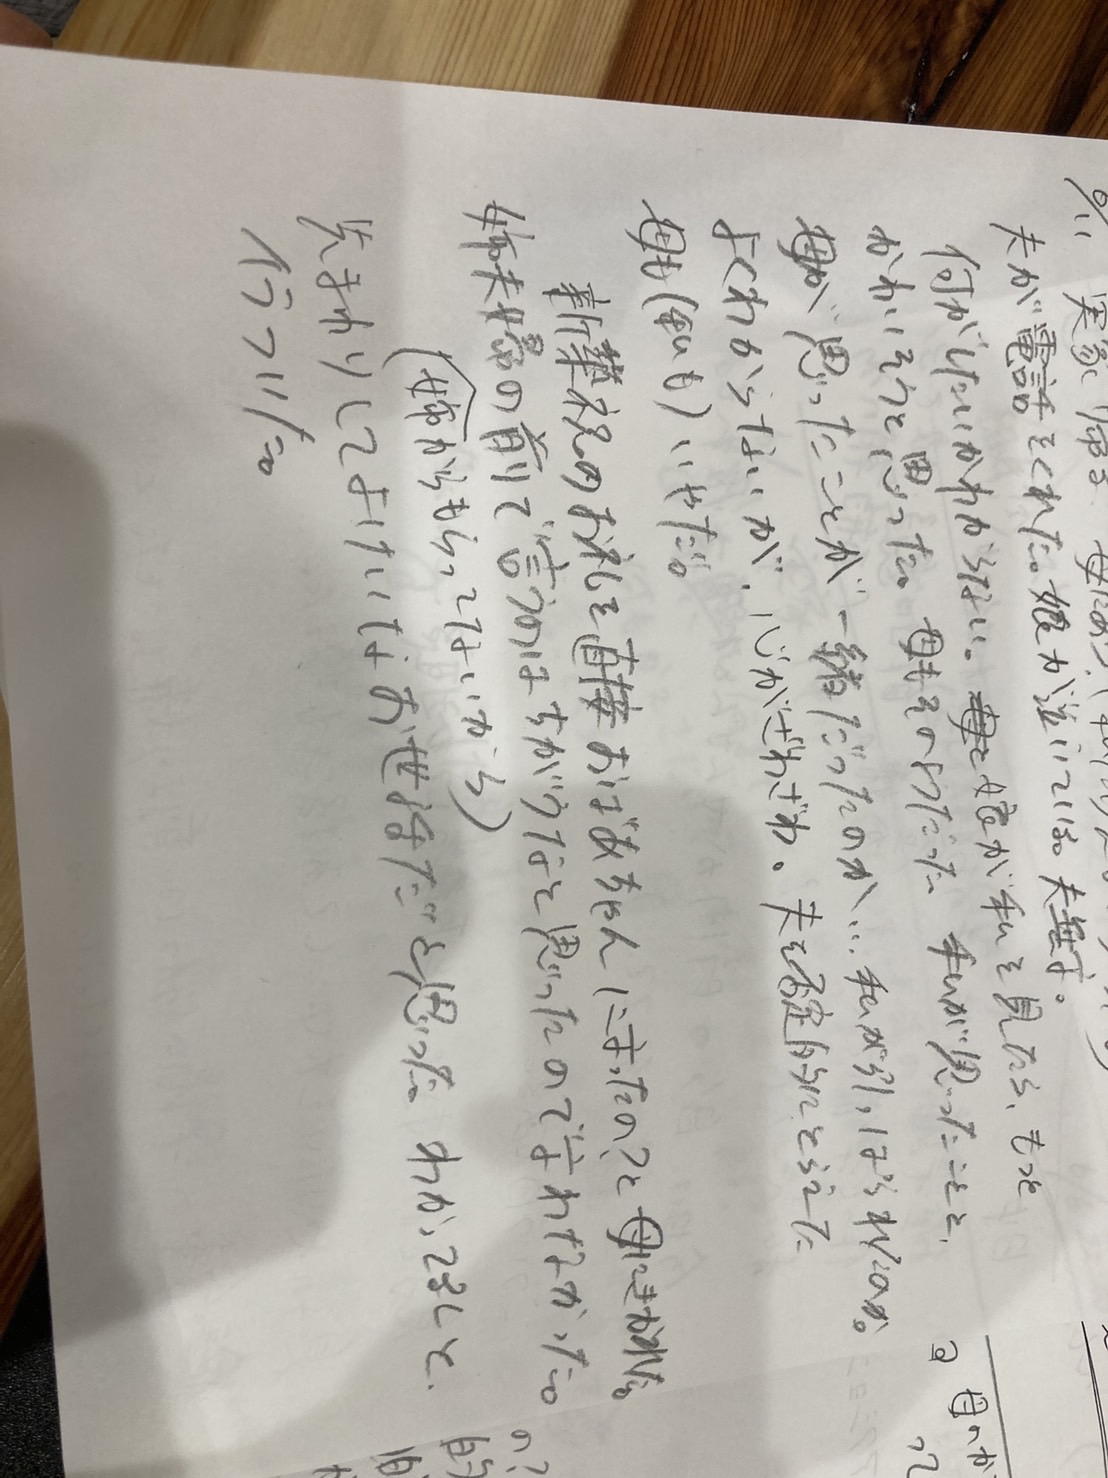 9/11 実家に帰る
夫が電話をくれた。娘が泣いている。夫無言。
何がしたいかわからない。娘が私を見たら、もっと
かわいそうと思った。母もそのようだった 私が思ったことと、
母が思ったことが一緒だったのか… 私が引っぱられたのか。
よくわからないが、心がざわざわ。夫を否定的にとらえた
母も(私も)いやだ。
新築祝のお礼を直接おばあちゃんに言ったの?と母にきかれた。
姉夫婦の前で言うのはちがうなと思ったので言わなかった。
(姉からもらってないから)
先まわりしてよけいなお世話だと思った。わかってるしと、
イラついた。
母のか
って
の?